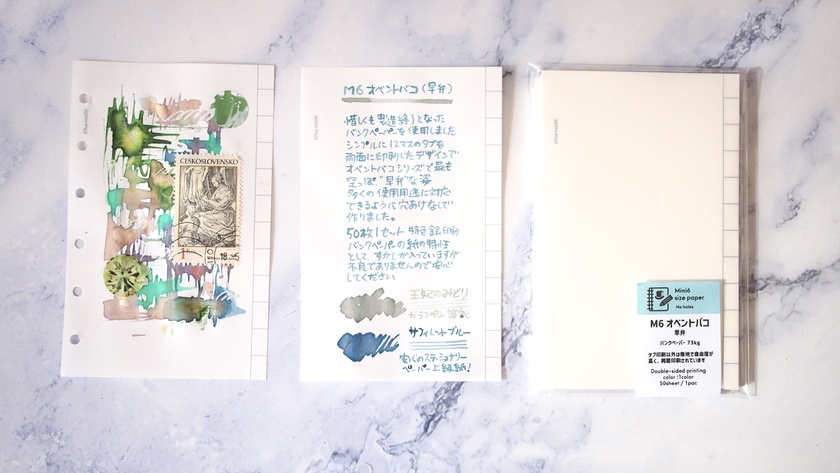 ČESKOSLOVENSKO
M6 オベントバコ(早弁)
惜しくも製造終了となった
バンクペーパーを使用しました
シンプルに12マスのタブを
両面に印刷したデザインで
オベントバコシリーズで最も
空っぽ"早弁"な姿
多くの使用用途に対応
できるように穴あけなしで
作りました。
50枚1セット 特色銀印刷
バンクペーパーの紙の特性
として、すかしが入っていますが
不良でありませんので安心
してください
王妃のみどり
ガラスペン筆記
サフィレットブルー
安心のステーショナリー
ペーパー上級紙!
Mini6
size paper
No holes
M6 オベントバコ
早弁
バンクペーパー 73kg
タブ印刷以外は無地で自由度が
高く、両面印刷されています
Double-sided printing
color :1color
50sheet / 1pac